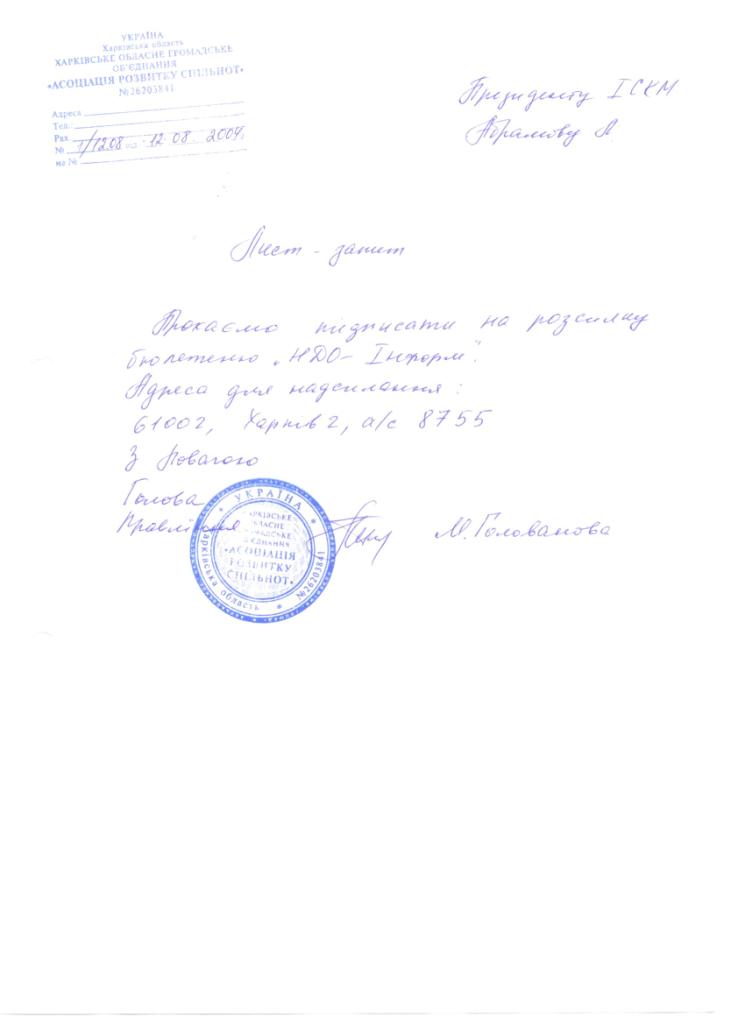 УКРАЇНА
Харківська область
ХАРКІВСЬКЕ ОБЛАСНЕ ГРОМАДСЬКЕ
ОБ'ЄДНАННЯ
«АСОЦІАЦІЯ РОЗВИТКУ СПІЛЬНОТ»
№26203841
Адреса
Тел.:
Рах
№ 1/1208 від 12.08.2004
на №
Президенту ІСКМ
Абрамову А.
Лист - запит
Прохаємо підписати на розсилку
бюлетеню „НДО- Інформ".
Адреса для надсилання:
61002, Харків 2, а/с 8755
З Повагою
Голова
Правління М. Голованова
УКРАЇНА
ХАРКІВСЬКЕ
ОБЛАСНЕ
ГРОМАДСЬКЕ
ОБ'ЄДНАННЯ
«АСОЦІАЦІЯ
РОЗВИТКУ
СПІЛЬНОТ»
Харківська область
№26203841